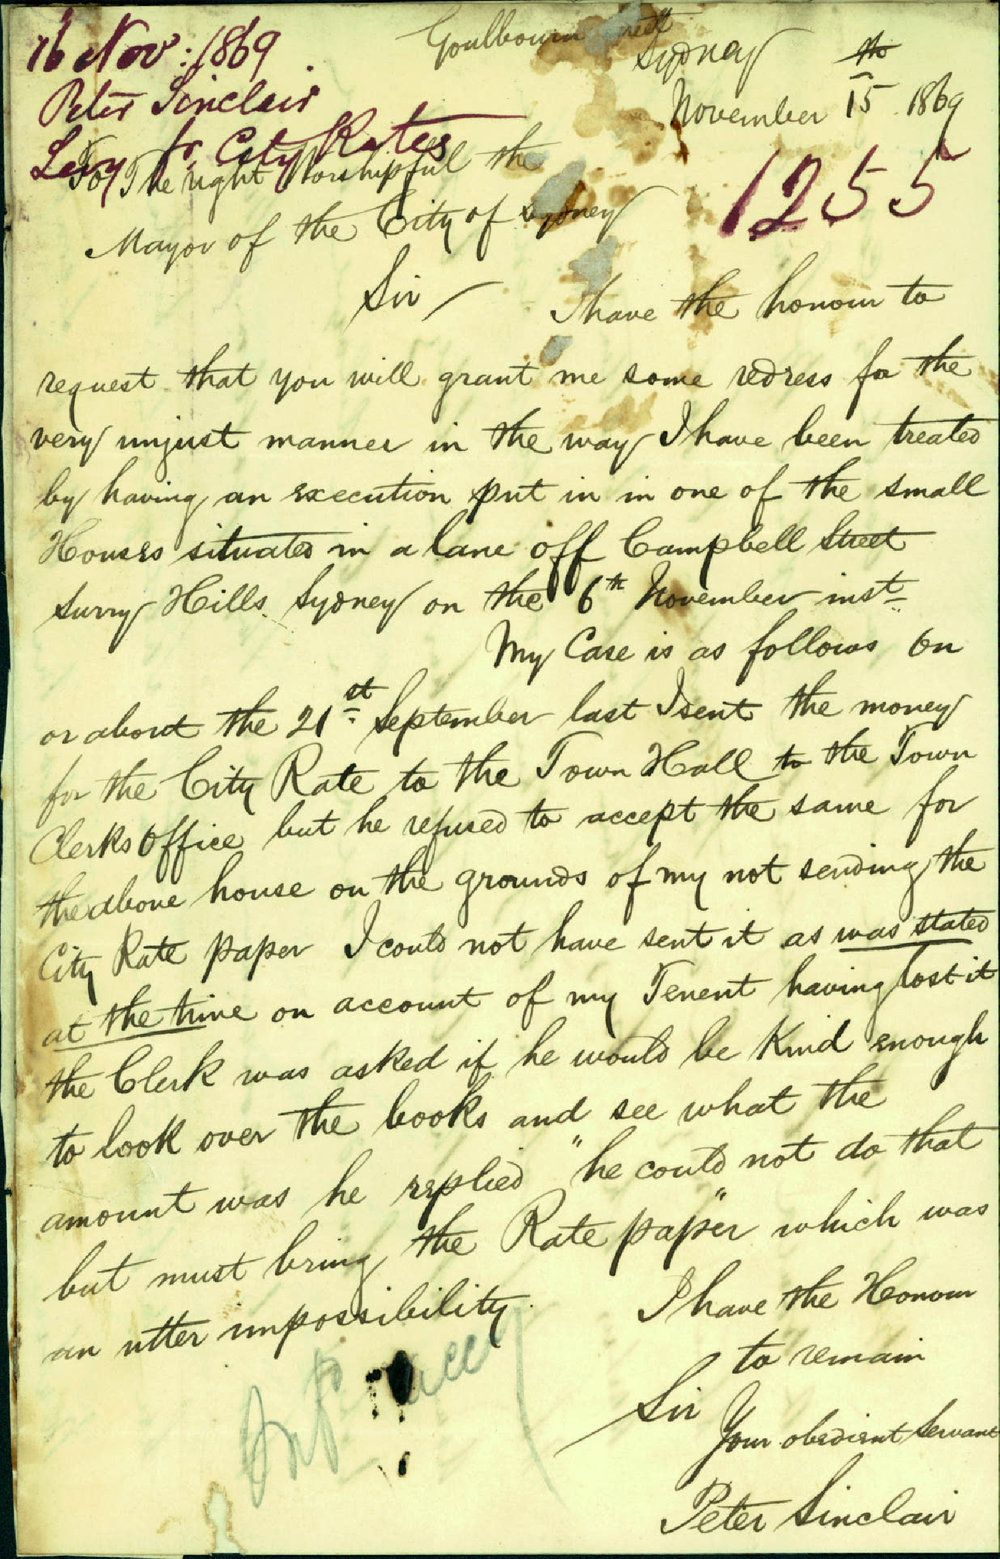 16 Nov: 1869
Peter Sinclair
Levy for City Rates
1255
Goulbourn Street
Sydney
November 15th 1869
To The right Worshipful the
Mayor of the City of Sydney
Sir
I have the honour to
request that you will grant me some redress for the
very unjust manner in the way I have been treated
by having an execution put in in one of the small
Houses situated in a lane off Campbell Street
Surry Hills. Sydney on the 6th November inst
My Case is as follows On
or about the 21st September last I sent the money
for the City Rate to the Town Hall to the Town
Clerks Office but he refused to accept the same for
the above house on the grounds of my not sending the
City Rate paper I could not have sent it as was stated
at the time on account of my Tenent having lost it
the Clerk was asked if he would be Kind enough
to look over the books and see what the
amount was he replied "he could not do that
but must bring the Rate paper" which was
an utter impossibility.
I have the Honour
to remain
Sir
Your obedient Servant
Peter Sinclair